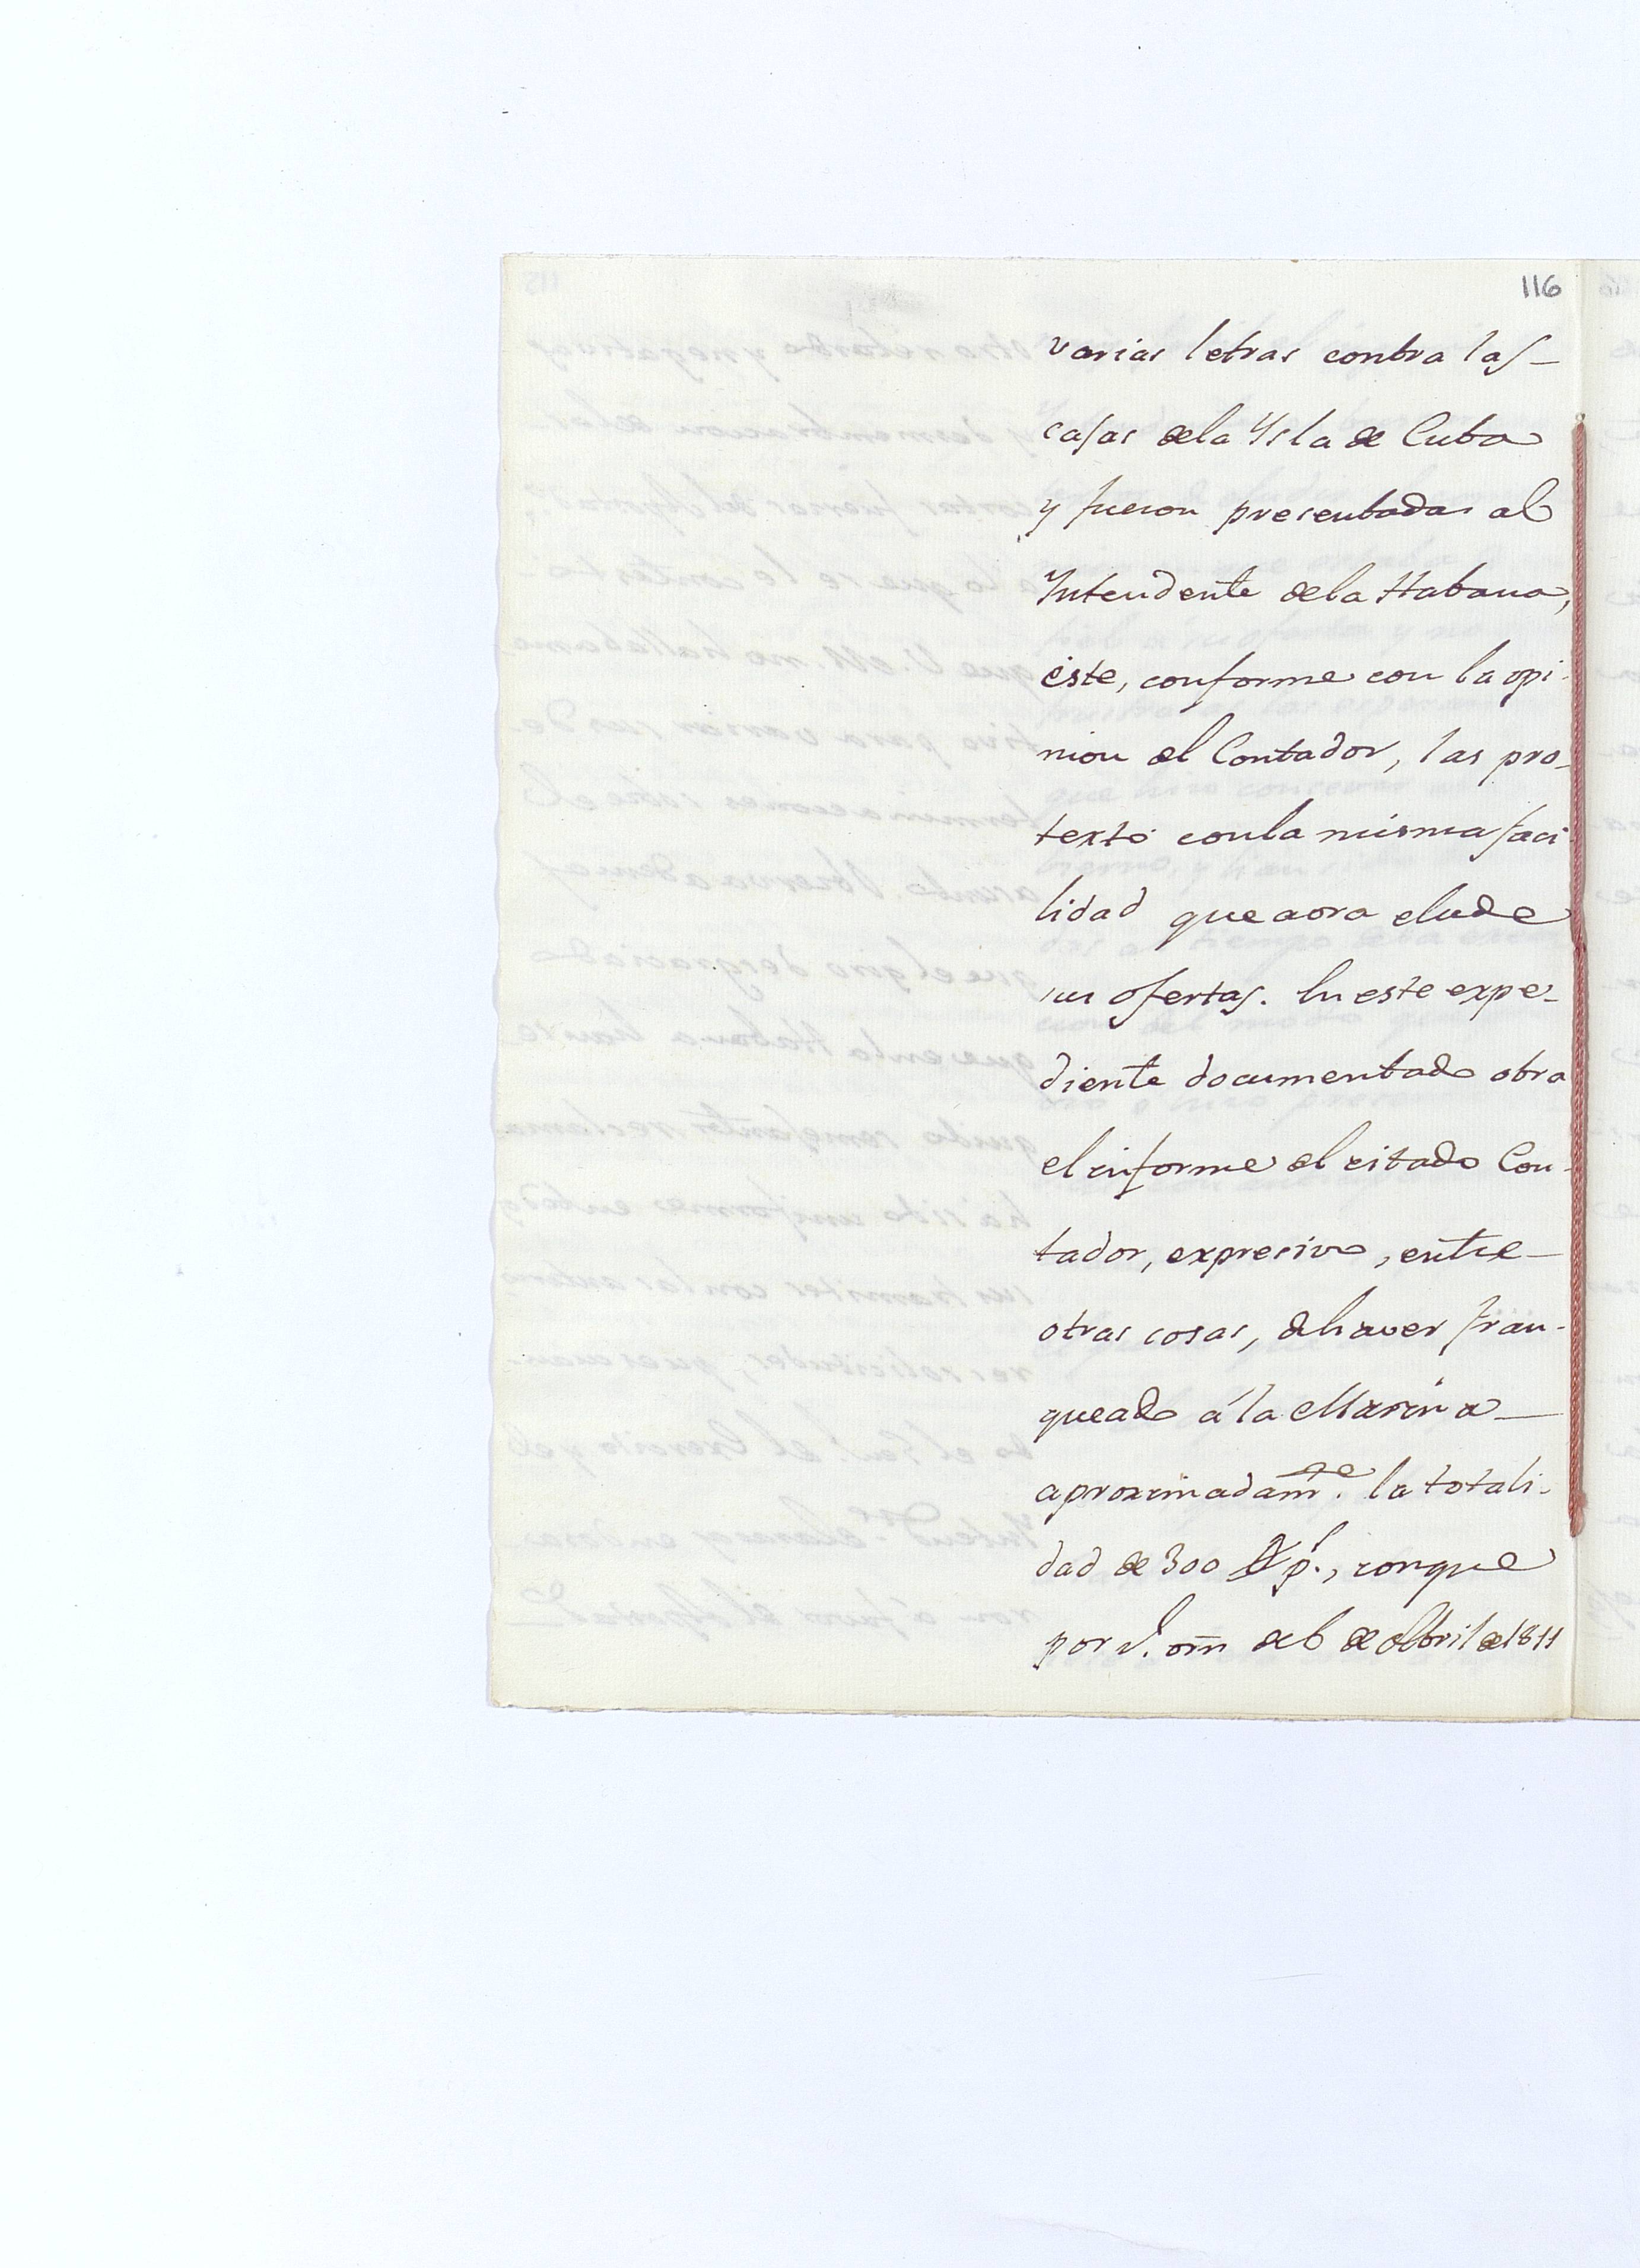 116
varias letras contra las
casas dela Ysla de Cuba
y fueron presentadas al
Yntendente dela Habana,
éste, conforme con la opi-
nion del Contador, las pro-
textó conla misma faci-
lidad que aora elude
sus ofertas. En este expe-
diente documentado obra
el informe del citado Con-
tador, expresivo, entre
otras cosas, de haver fran-
queado á la Marina
aproximadamte. la totali-
dad de 300 ps., conque
por Rl. orn de 6 de Abril de 1811